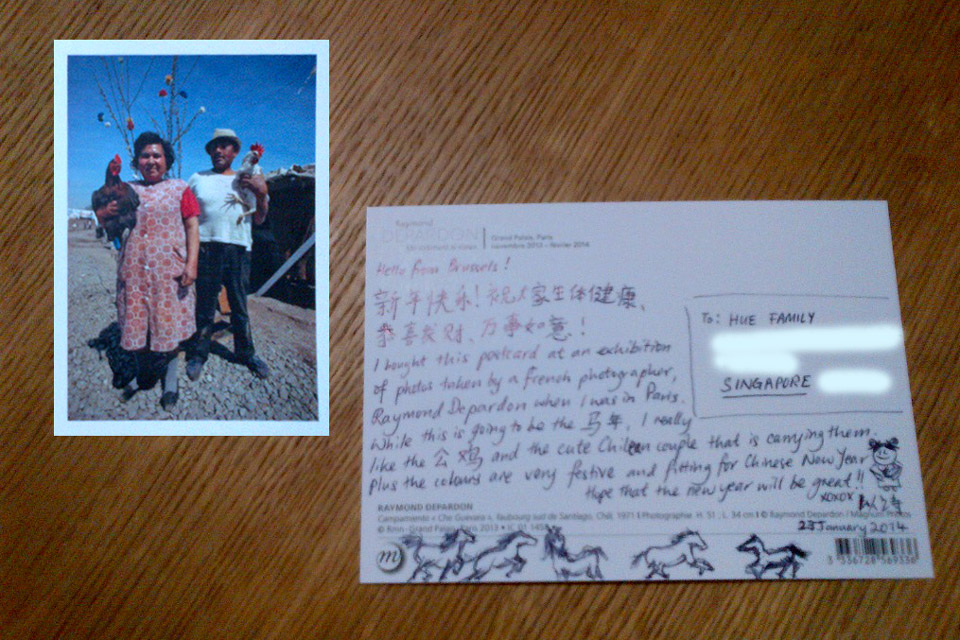 Raymond
DEPARDON
Grand Palais, Paris
novembre 2013 – février 2014
Hello from Brussels!
新年快乐!祝大家生体健康、
恭喜发财、万事如意!
I bought this postcard at an exhibition
of photos taken by a french photographer,
Raymond Depardon when I was in Paris.
While this is going to be the 马年, I really
like the 公鸡 and the cute Chilean couple that is carrying them.
Plus the colours are very festive and fitting for Chinese New Year
Hope that the new year will be great!!
xoxox
23 January 2014
To: HUE FAMILY
SINGAPORE
RAYMOND DEPARDON
Campamiento « Che Guevara », faubourg sud de Santiago, Chili, 1971 I Photographie. H. 51 ; L. 34 cm I © Raymond Depardon / Magnum Photos
© Rmn - Grand Palais, Paris 2013 • IC 01
m
3 336728 569336